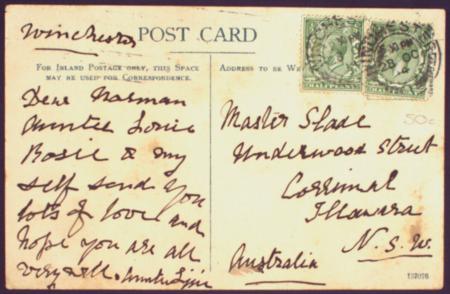 Winchester
POST CARD
FOR INLAND POSTAGE ONLY, THIS SPACE
MAY BE USED FOR CORRESPONDENCE.
ADDRESS TO BE
Dear Norman
Auntie Louie
Rosie & my
self send you
lots of love and
hope you are all
very well. Auntie
Master Slade
Underwood Street
Corrimal
Illawara
N.S.W.
Australia
50c